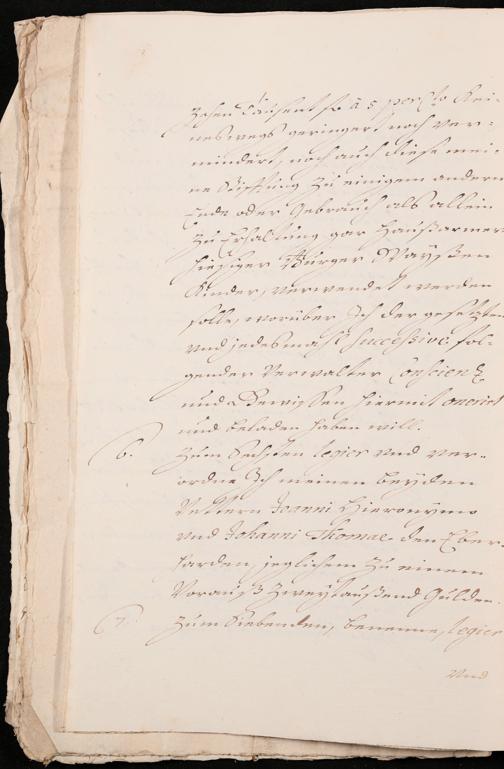 Zehen Tausent fl à 5 per Cto kei-
neswegs geringert noch ver-
mindert, noch auch diese mei-
ne Stifftung zu einigem andern
Ende oder Gebrauch als allein
zu Erhaltung gar Haußarmer
hiesiger Burger Waysen
Kinder, verwendet werden
solle, worüber Ich der gesetzten
und jedesmahl successive fol-
gender Verwalter Conscienz
und Gewissen hiermit onerirt
und beladen haben will.
6. Zum Sechsten legier und ver-
ordne Ich meinen beyden
Vettern Joanni Hieronymo
und Johanni Thomae den Eber-
harden, jeglichem zu einem
Vorauß Zweytaußend Gulden.
7. Zum Siebenden, benenne, legier
und